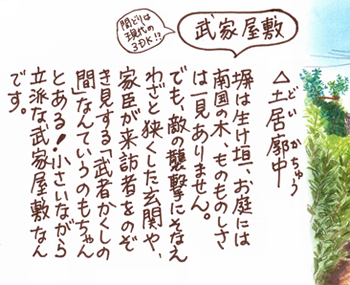 武家屋敷
間どりは
現代の
3DK!?
△土居廓中
どいかちゅう
塀は生け垣、お庭には
南国の木、ものものしさ
は一見ありません。
でも、敵の襲撃にそなえ
わざと狭くした玄関や、
家臣が来訪者をのぞ
き見する「武者かくしの
間」なんていうのもちゃん
とある!小さいながら
立派な武家屋敷なん
です。